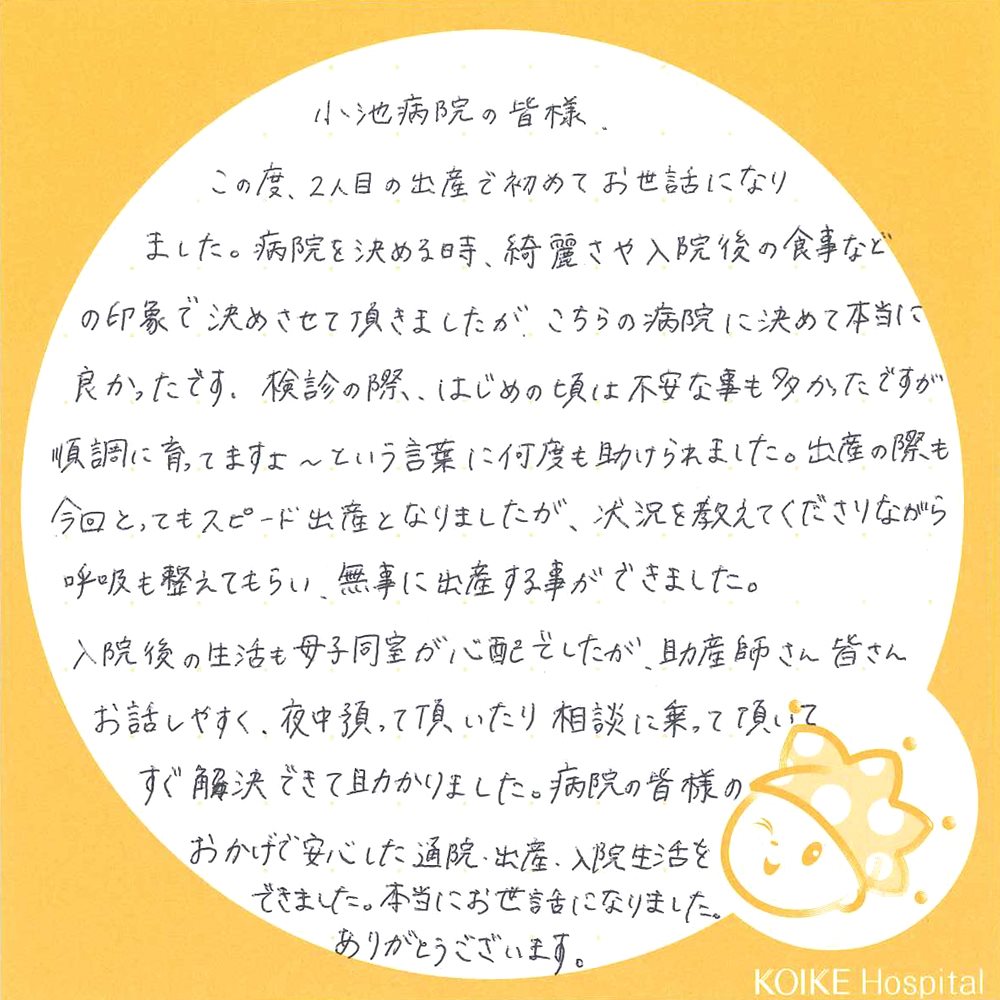 小池病院の皆様、
この度、2人目の出産で初めてお世話になり
ました。病院を決める時、綺麗さや入院後の食事など
の印象で決めさせて頂きましたが、こちらの病院に決めて本当に
良かったです。検診の際、はじめの頃は不安な事も多かったですが
順調に育ってますよ～という言葉に何度も助けられました。出産の際も
今回とってもスピード出産となりましたが、状況を教えてくださりながら
呼吸も整えてもらい、無事に出産する事ができました。
入院後の生活も母子同室が心配でしたが、助産師さん皆さん
お話しやすく、夜中預って頂いたり相談に乗って頂いて
すぐ解決できて助かりました。病院の皆様の
おかげで安心した通院・出産・入院生活を
できました。本当にお世話になりました。
ありがとうございます。
KOIKE Hospital